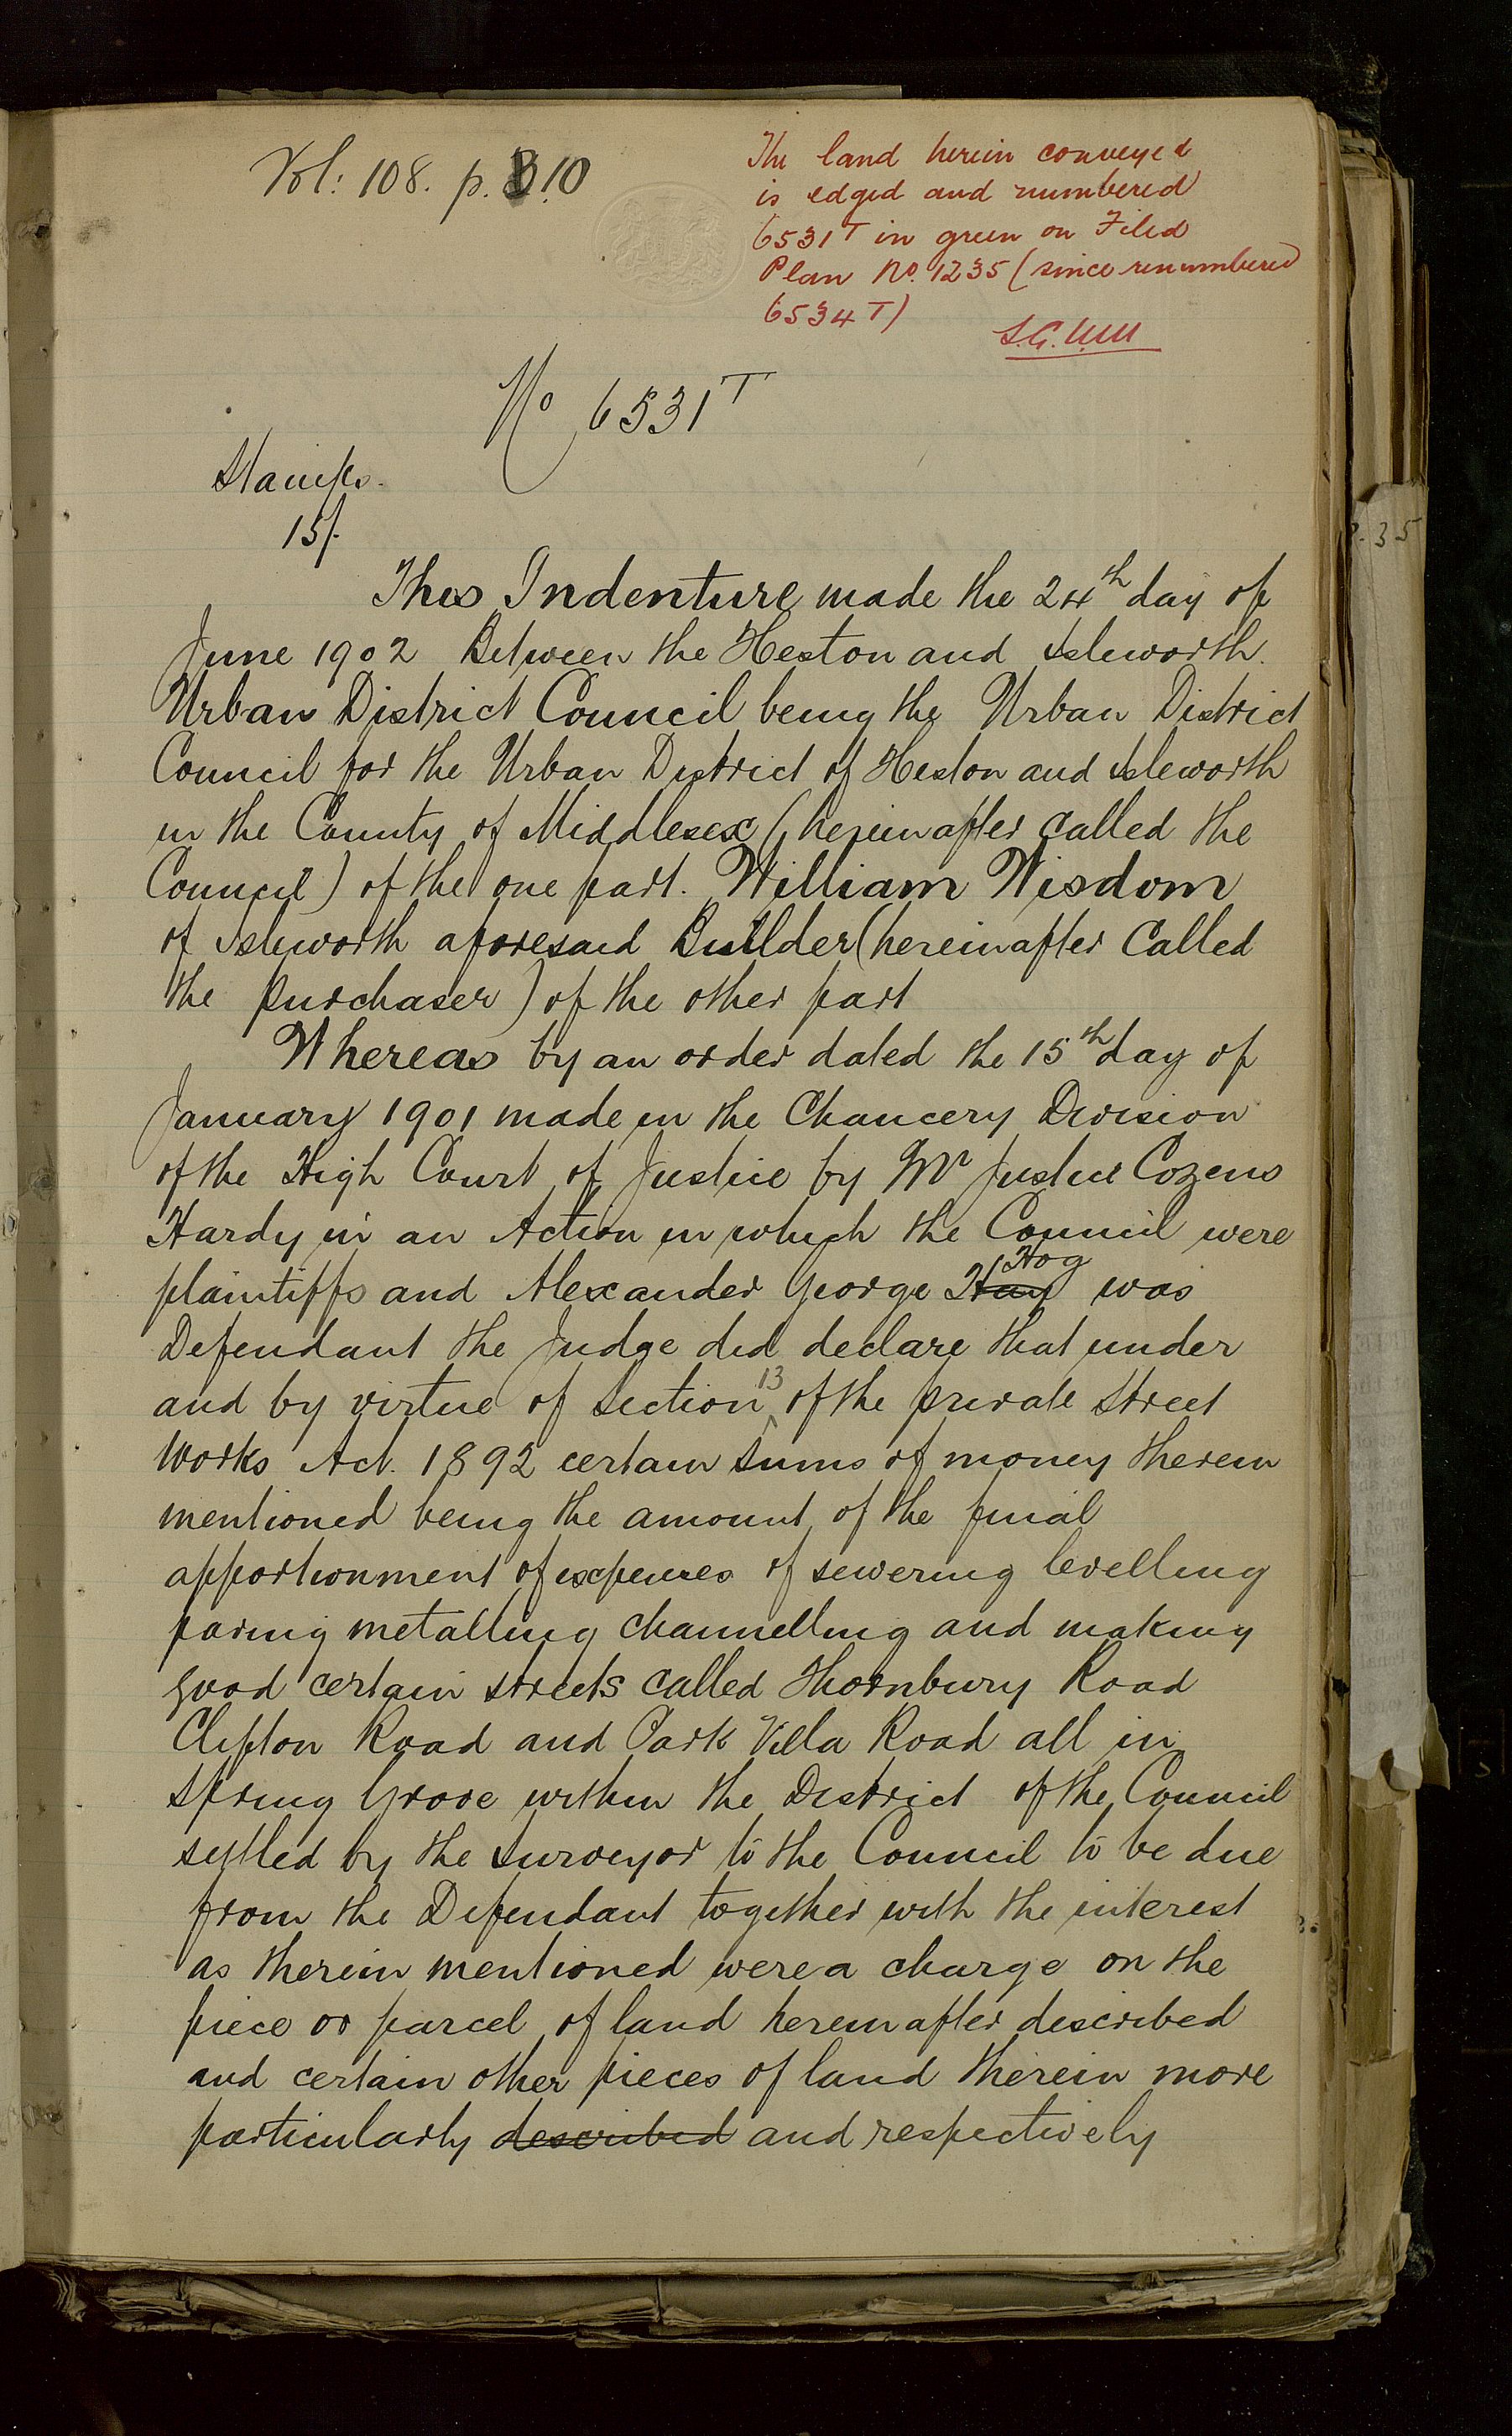 Vol: 108. p. 310
The land herein conveyed
is edged and numbered
6531T in green on Filed
Plan No. 1235 (since renumbered
6534T)
No 6531T
Stamps.
15/.
This Indenture made the 24th day of
June 1902 Between the Heston and Isleworth
Urban District Council being the Urban District
Council for the Urban District of Heston and Isleworth
in the County of Middlesex (hereinafter called the
Council) of the one part. William Wisdom
of Isleworth aforesaid Builder (hereinafter called
the purchaser) of the other part
Whereas by an order dated the 15th day of
January 1901 made in the Chancery Division
of the High Court of Justice by Mr Justice Cozens
Hardy in an Action in which the Council were
plaintiffs and Alexander George Hog was
Defendant the Judge did declare that under
and by virtue of Section 13 of the private Street
Works Act. 1892 certain sums of money therein
mentioned being the amount of the final
apportionment of expenses of sewering levelling
paving metalling channelling and making
good certain streets called Thornbury Road
Clifton Road and Park Villa Road all in
Spring Grove within the District of the Council
settled by the surveyor to the Council to be due
from the Defendant together with the interest
as therein mentioned were a charge on the
piece or parcel of land hereinafter described
and certain other pieces of land therein more
particularly described and respectively